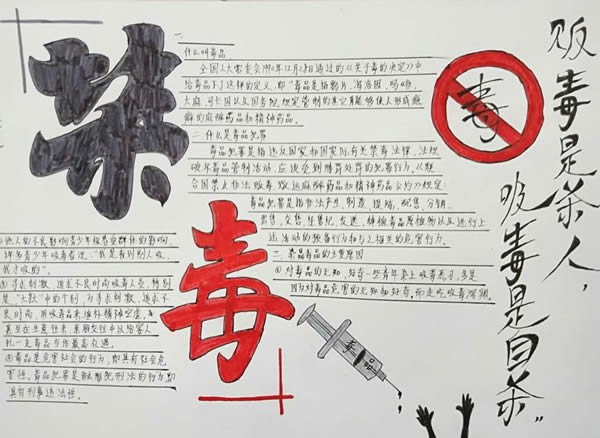 禁
毒
一
什么叫毒品
全国人大常委会1990年12月28日通过的《关于毒的决定》中
给毒品下了这样的定义,即"毒品是指鸦片、海洛因、吗啡、
大麻、可卡因以及国务院规定管制的其它
能够使人形成瘾
癖的麻醉药品和精神药品。
二.什么是毒品犯罪
毒品犯罪是指违反国家和国家际有关禁毒法律、法规
破坏毒品管制活动,应该受到刑罚处罚的犯罪行为。《联
合国禁止非法贩毒、
麻醉药品和精神药品公约》规定:
毒品犯罪是指非法生产、制造、提炼、配售、分销、
出售、交售、
种植毒品原植物以及进行上
述活动的预备行为和与上相关的危害行为。
三.染毒品的主要原因
①对毒品的无知、好奇一些青年染上吸毒恶习,多是
因为对毒品危害的无知和好奇,而走吃吸毒深渊。
②他人的不良影响青少年极易受群体的影响,
许多青少年吸毒者说:"我是看到别人吸,
我才吸的"。
③寻求刺激、追求不良时尚吸毒人员,特别
是"大款"中的个别,为寻求刺激,追求不
良时尚,用吸毒品来填补精神空虚,
甚至在生意往来,
以给客人
扎一支毒品当作最高礼遇。
④毒品是危害社会的行为,即具有社会危
害性。毒品犯罪是触
犯刑法的行为,即
具有刑事违法性。
毒
毒品
贩毒是杀人,
吸毒是自杀"